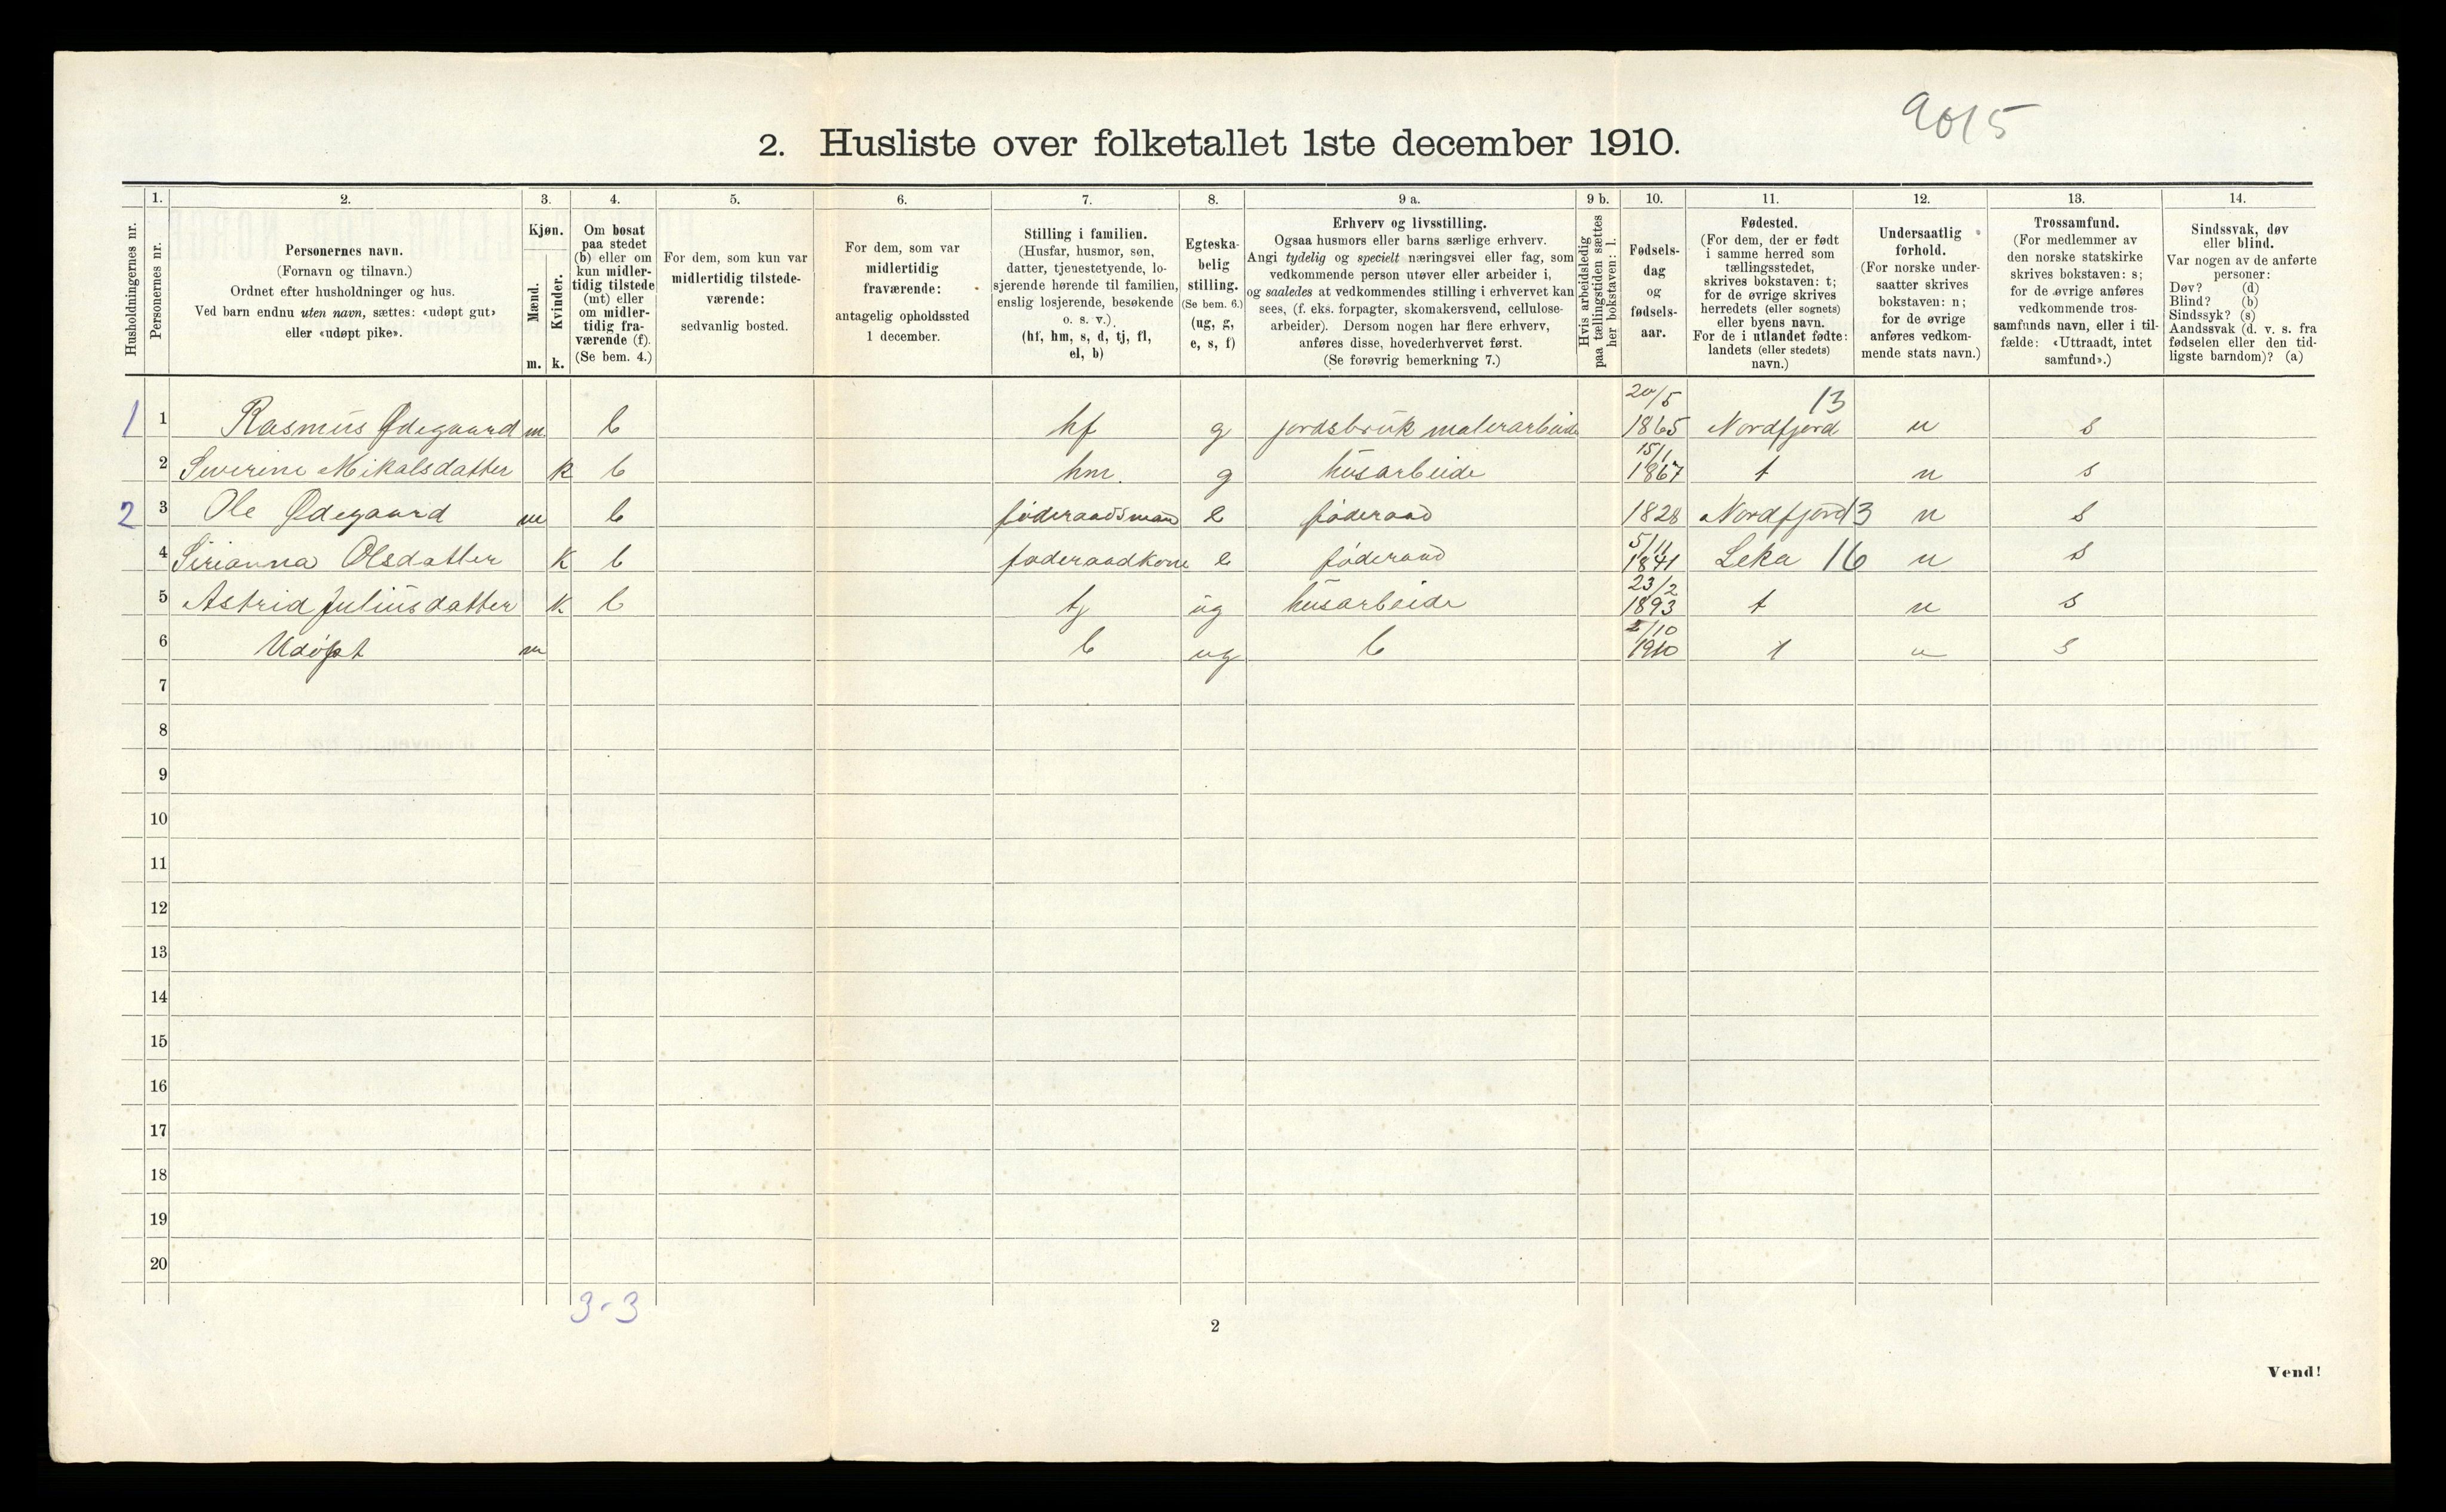 9015
2. Husliste over folketallet 1ste december 1910.
Husholdningernes nr.
1.
Personernes nr.
2.
Personernes navn.
(Fornavn og tilnavn.)
Ordnet efter husholdninger og hus.
Ved barn endnu uten navn, sættes: «udøpt gut»
eller «udøpt pike».
3.
Kjøn.
Mænd.
m.
Kvinder.
k.
4.
Om bosat
paa stedet
(b) eller om
kun midler-
tidig tilstede
(mt) eller
om midler-
tidig fra-
værende (f).
(Se bem. 4.)
5.
For dem, som kun var
midlertidig tilstede-
værende:
sedvanlig bosted.
6.
For dem, som var
midlertidig
fraværende:
antagelig opholdssted
1 december.
7.
Stilling i familien.
(Husfar, husmor, søn,
datter, tjenestetyende, lo-
sjerende hørende til familien,
enslig losjerende, besøkende
o. s. v.).
(hf, hm, s, d, tj, fl,
el, b)
8.
Egteska-
belig
stilling.
(Se bem. 6.)
(ug, g,
e, s, f)
9 a.
Erhverv og livsstilling.
Ogsaa husmors eller barns særlige erhverv.
Angi tydelig og specielt næringsvei eller fag, som
vedkommende person utøver eller arbeider i,
og saaledes at vedkommendes stilling i erhvervet kan
sees, (f. eks. forpagter, skomakersvend, cellulose-
arbeider). Dersom nogen har flere erhverv,
anføres disse, hovederhvervet først.
(Se forøvrig bemerkning 7.)
9 b.
Hvis arbeidsledig
paa tællingstiden sættes
her bokstaven: l.
10.
Fødsels-
dag
og
fødsels-
aar.
11.
Fødested.
(For dem, der er født
i samme herred som
tællingsstedet,
skrives bokstaven: t;
for de øvrige skrives
herredets (eller sognets)
eller byens navn.
For de i utlandet fødte:
landets (eller stedets)
navn.)
12.
Undersaatlig
forhold.
(For norske under-
saatter skrives
bokstaven: n;
for de øvrige
anføres vedkom-
mende stats navn.)
13.
Trossamfund.
(For medlemmer av
den norske statskirke
skrives bokstaven: s;
for de øvrige anføres
vedkommende tros-
samfunds navn, eller i til-
fælde: «Uttraadt, intet
samfund».)
14.
Sindssvak, døv
eller blind.
Var nogen av de anførte
personer:
Døv? (d)
Blind? (b)
Sindssyk? (s)
Aandssvak (d. v. s. fra
fødselen eller den tid-
ligste barndom)? (a)
1 1 Rasmus Ødegaard m b hf g jordsbruk malerarbeide 20/5 1865 Nordfjord 13 n s
2 Severine Mikalsdatter k b hm. g husarbeide 15/1 1867 t n s
2 3 Ole Ødegaard m b føderaadsman e føderaad 1828 Nordfjord 13 n s
4 Sirianna Olsdatter k b føderaadkone e føderaad 5/11 1841 Leka 16 n s
5 Astrid Juliusdatter k b tj ug husarbeide 23/2 1893 t n s
6 Udøpt m b ug b /10 1910 t n s
7
8
9
10
11
12
13
14
15
16
17
18
19
20
3-3
2
Vend!